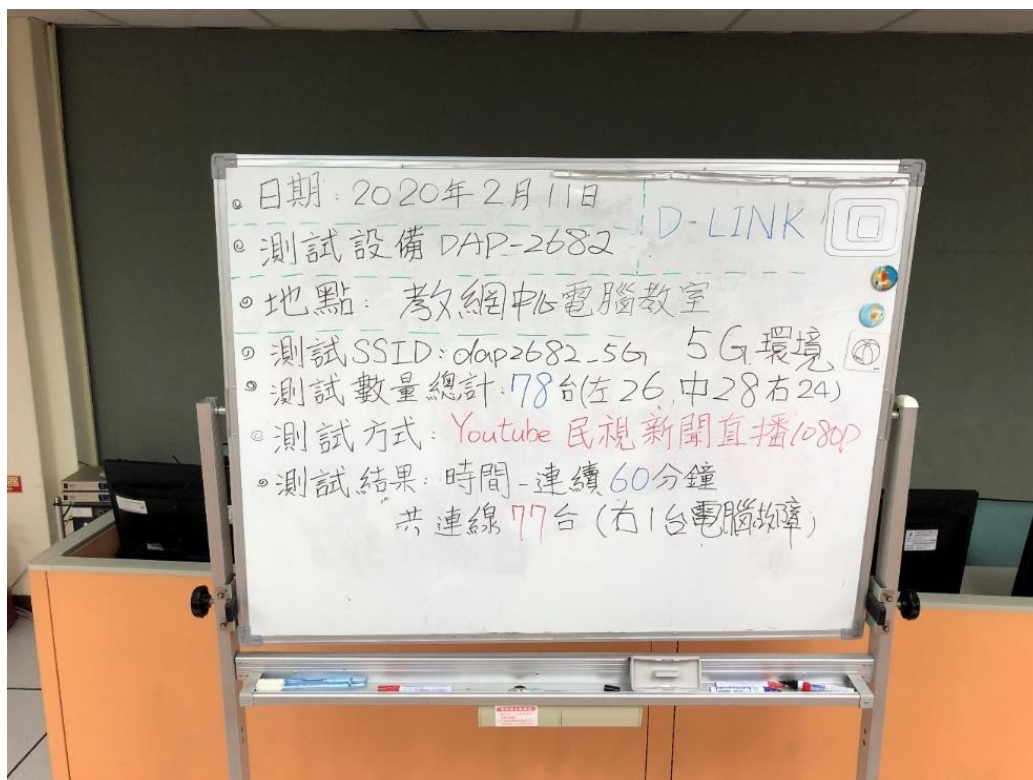 日期：2020年2月11日
D-LINK
測試設備 DAP-2682
地點： 教網中心電腦教室
測試SSID：dap2682_5G 5G環境
測試數量總計：78台(左26，中28右24)
測試方式：Youtube 民視新聞直播1080p
測試結果：時間-連續60分鐘
共連線77台 (右1台電腦故障)